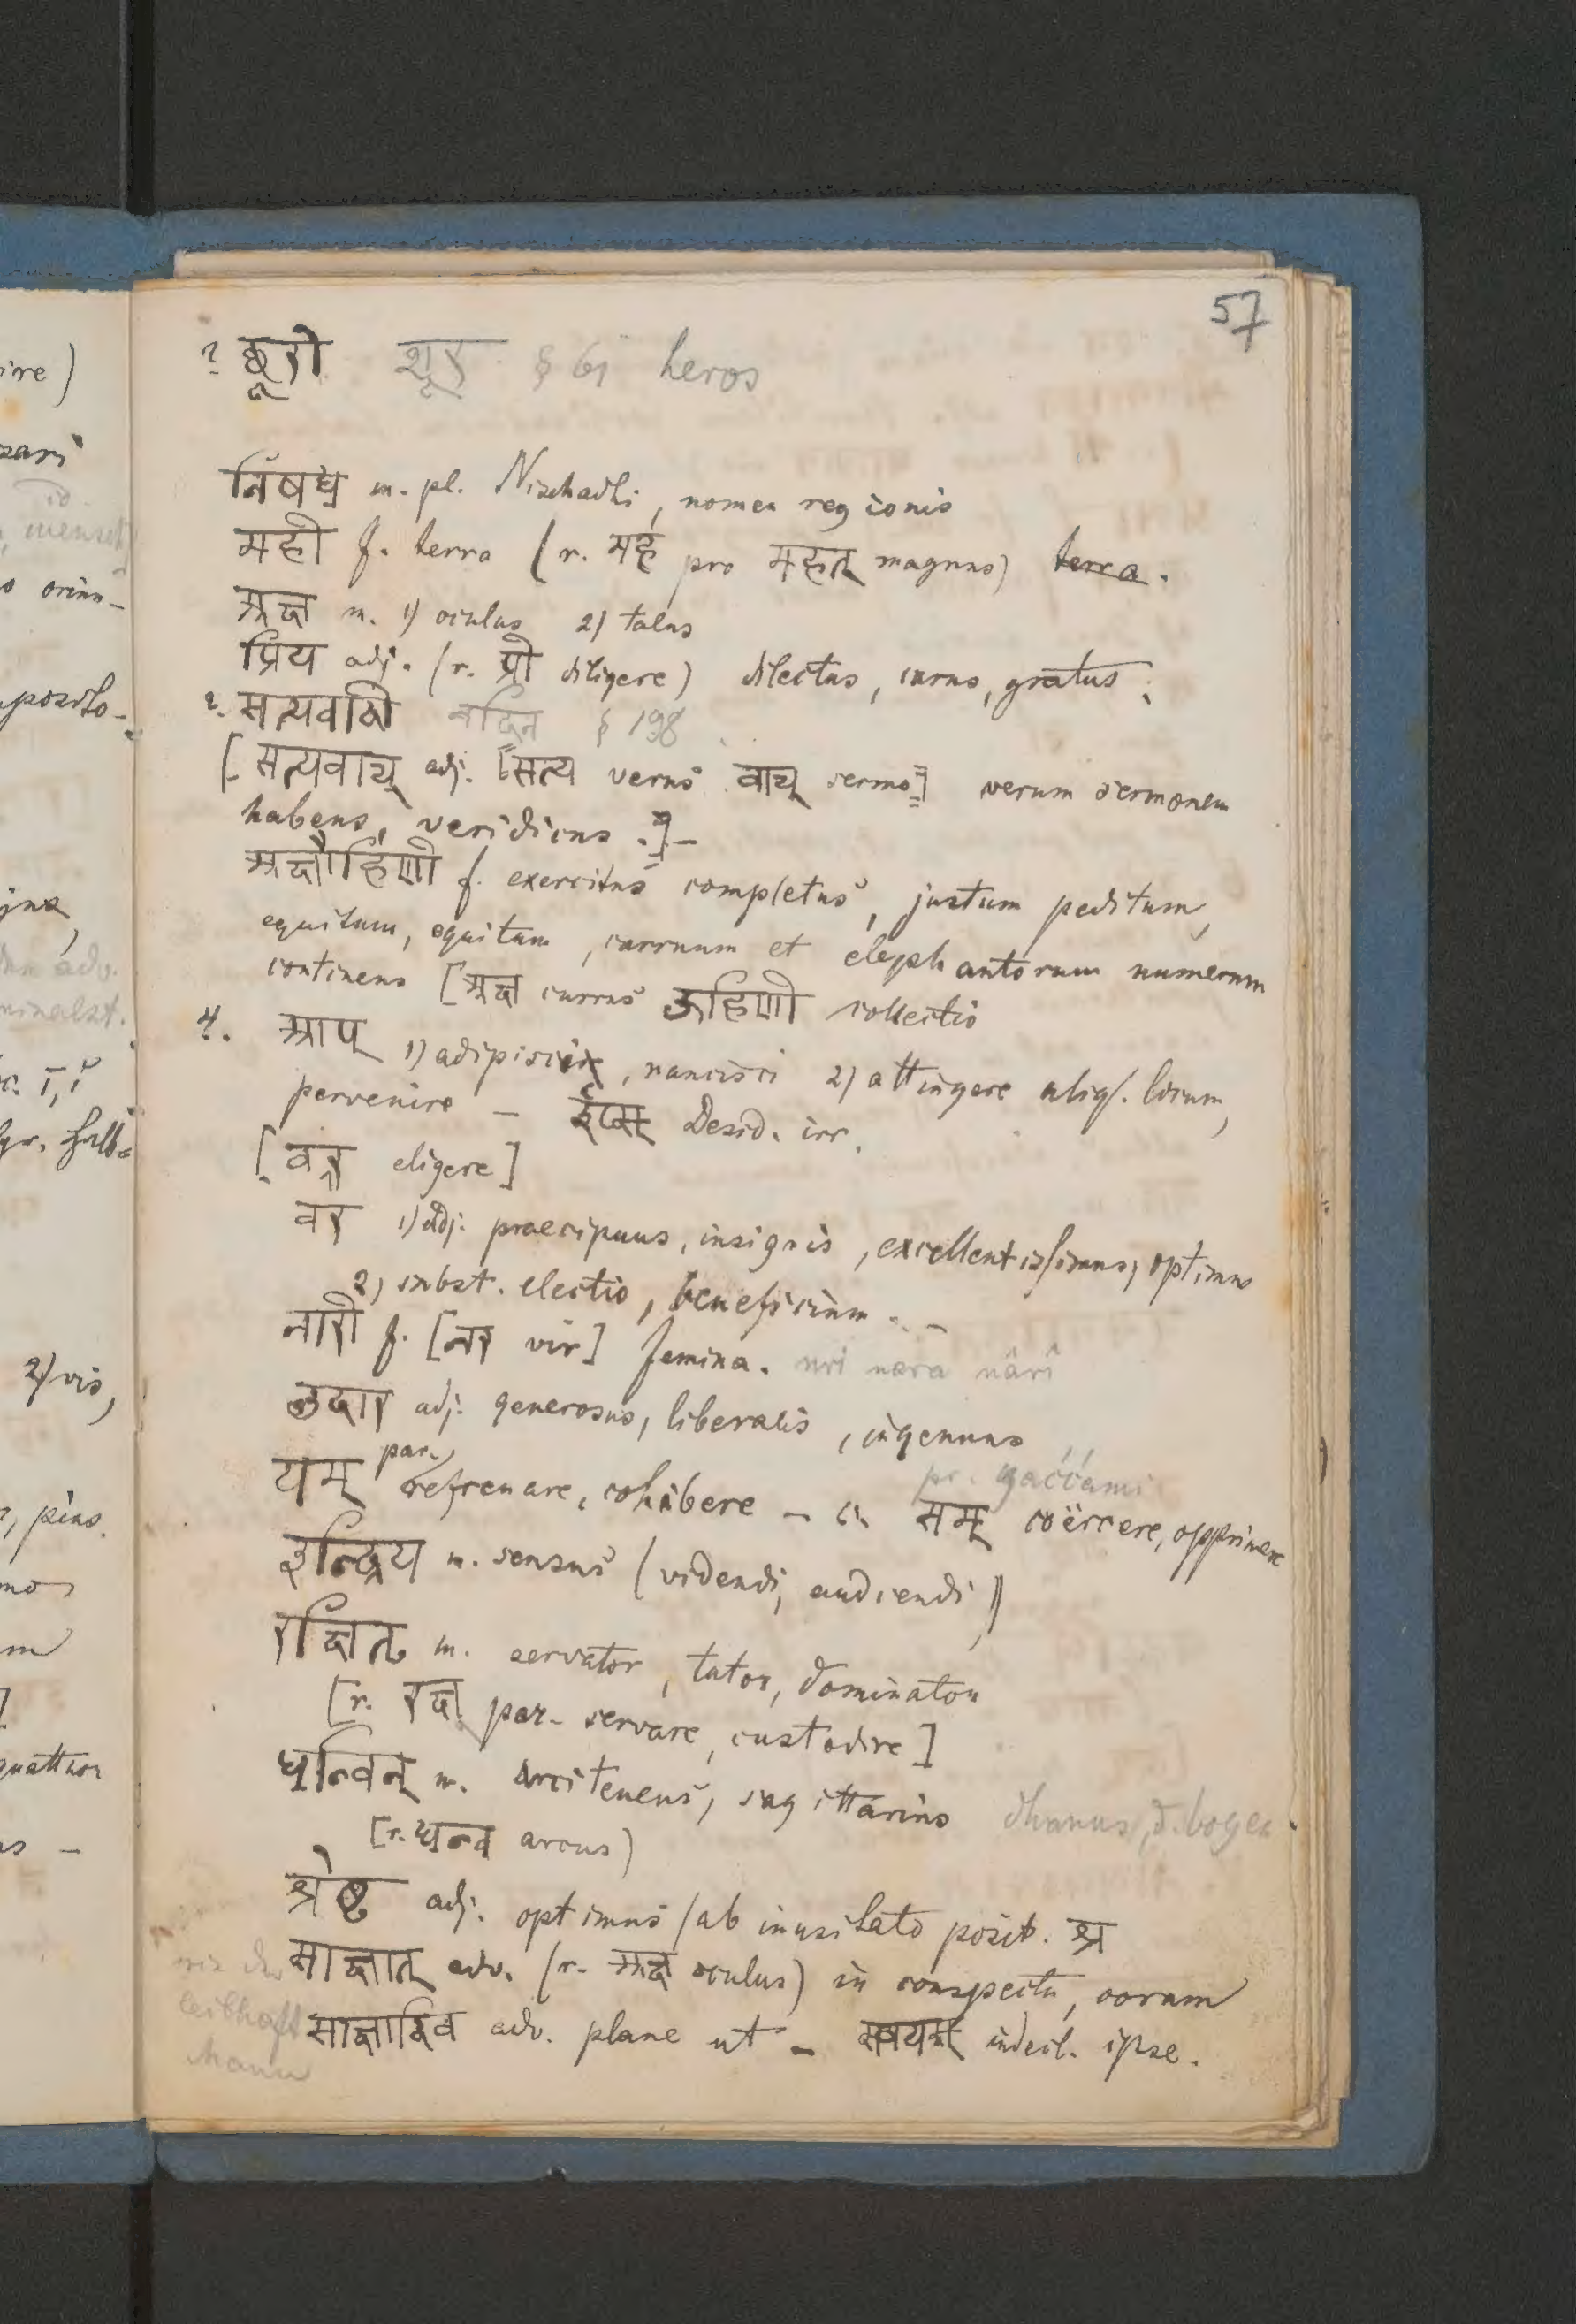 57
? छूरो शूर § 61 heros
निषध m. pl. Nischadhi, nomen regionis
मही f. terra (r. मह pro महत् magnus) terra.
अक्ष m. 1) oculus 2) talus
प्रिय adj. (r. प्री diligere) dilectus, carus, gratus;
?. सत्यवादी वादिन § 198
[सत्यवाच् adj. [सत्य verus वाच् sermo] verum sermonem
habens, veridicus.]-
अक्षौहिणी f. exercitus completus, justum peditum,
equitum, equitum, curruum et elephantorum numerum
continens [अक्ष currus ऊहिणी collectio
4. आप् 1) adipisci, nancisci 2) attingere aliq. locum,
pervenire - ईप्स् Desid. irr.
[वृ eligere]
वर 1) adj. praecipuus, insignis, excellentissimus, optimus
2) subst. electio, beneficium. -
नारी f. [नर vir] femina. nri nara nârî
उदार adj. generosus, liberalis, ingenuus
यम् par. refrenare, cohibere - c. सम् coërcere, opprimere
pr. yaććami
इन्द्रिय n. sensus (videndi, audiendi)
रक्षितृ m. servator, tutor, dominator
[r. रक्ष par. servare, custodire]
धन्विन् m. arcitenens, sagittarius dhanus, d. bogen
[r. धन्व arcus)
श्रेष्ठ adj. optimus (ab inusitato posit. श्र
साक्षात् adv. (r. अक्ष oculus) in conspectu, coram
leibhaft साक्षादिव adv. plane ut - स्वयम् indecl. ipse.
Manu
ire)
zari
mo
quattuor
2) vis,
pius.